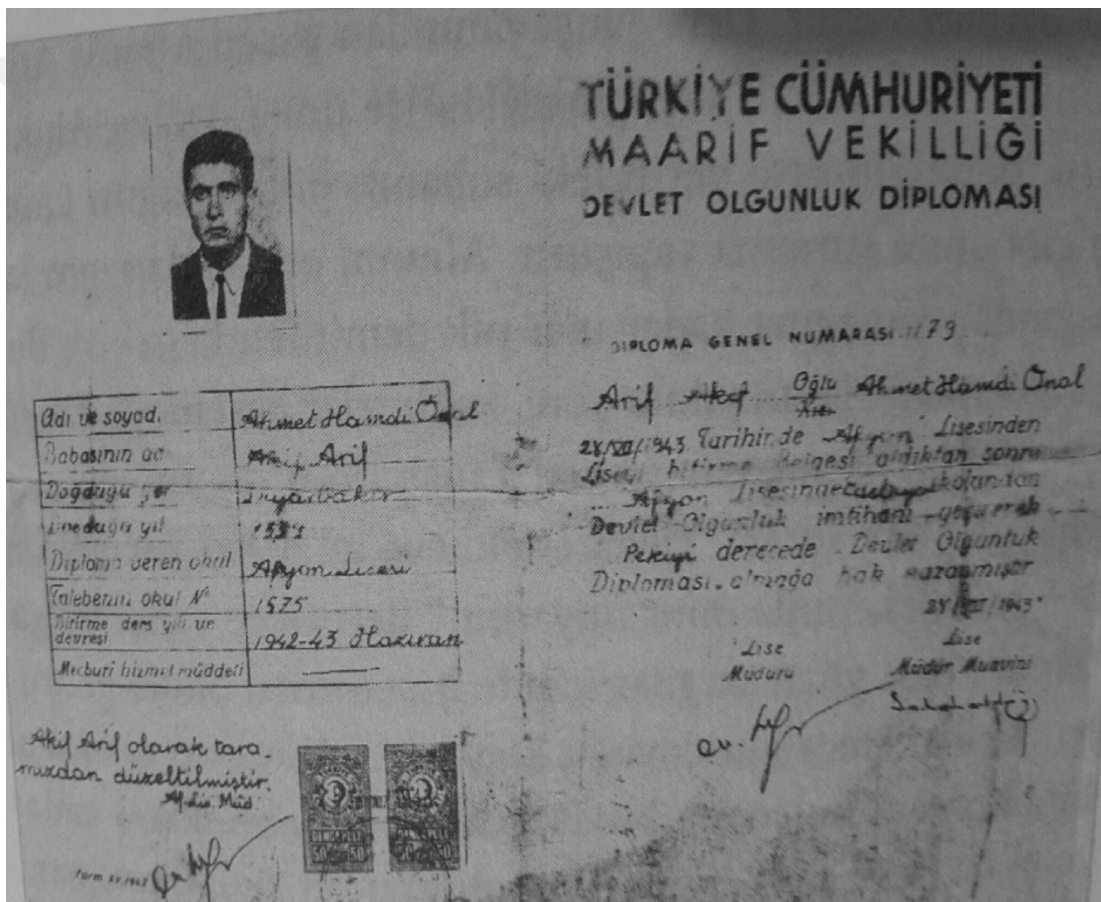 TÜRKİYE CÜMHURİYETİ
MAARİF VEKİLLİĞİ
DEVLET OLGUNLUK DİPLOMASI
DİPLOMA GENEL NUMARASI 1179
Arif Akif Oğlu Ahmet Hamdi Önal
Kızı
28/VII/1943 Tarihinde Afyon Lisesinden
Liseyi bitirme Belgesi aldıktan sonra
Afyon Lisesinde
Devlet Olgunluk imtihanı geçirerek
Pekiyi derecede Devlet Olgunluk
Diploması almağa hak kazanmıştır
28/VII/1943
Lise Müdürü
Lise Müdür Muavini
Adı ve soyadı Ahmet Hamdi Önal
Babasının adı Akif Arif
Doğduğu yer Diyarbakır
Doğduğu yıl
Diploma veren okul Afyon Lisesi
Talebenin okul Nº 1575
Bitirme ders yılı ve devresi 1942-43 Haziran
Mecburi hizmet müddeti
Akif Arif olarak tara-
mızdan düzeltilmiştir.
Af. Lis. Müd.
TÜRKİYE
50 50
TÜRKİYE
50 50